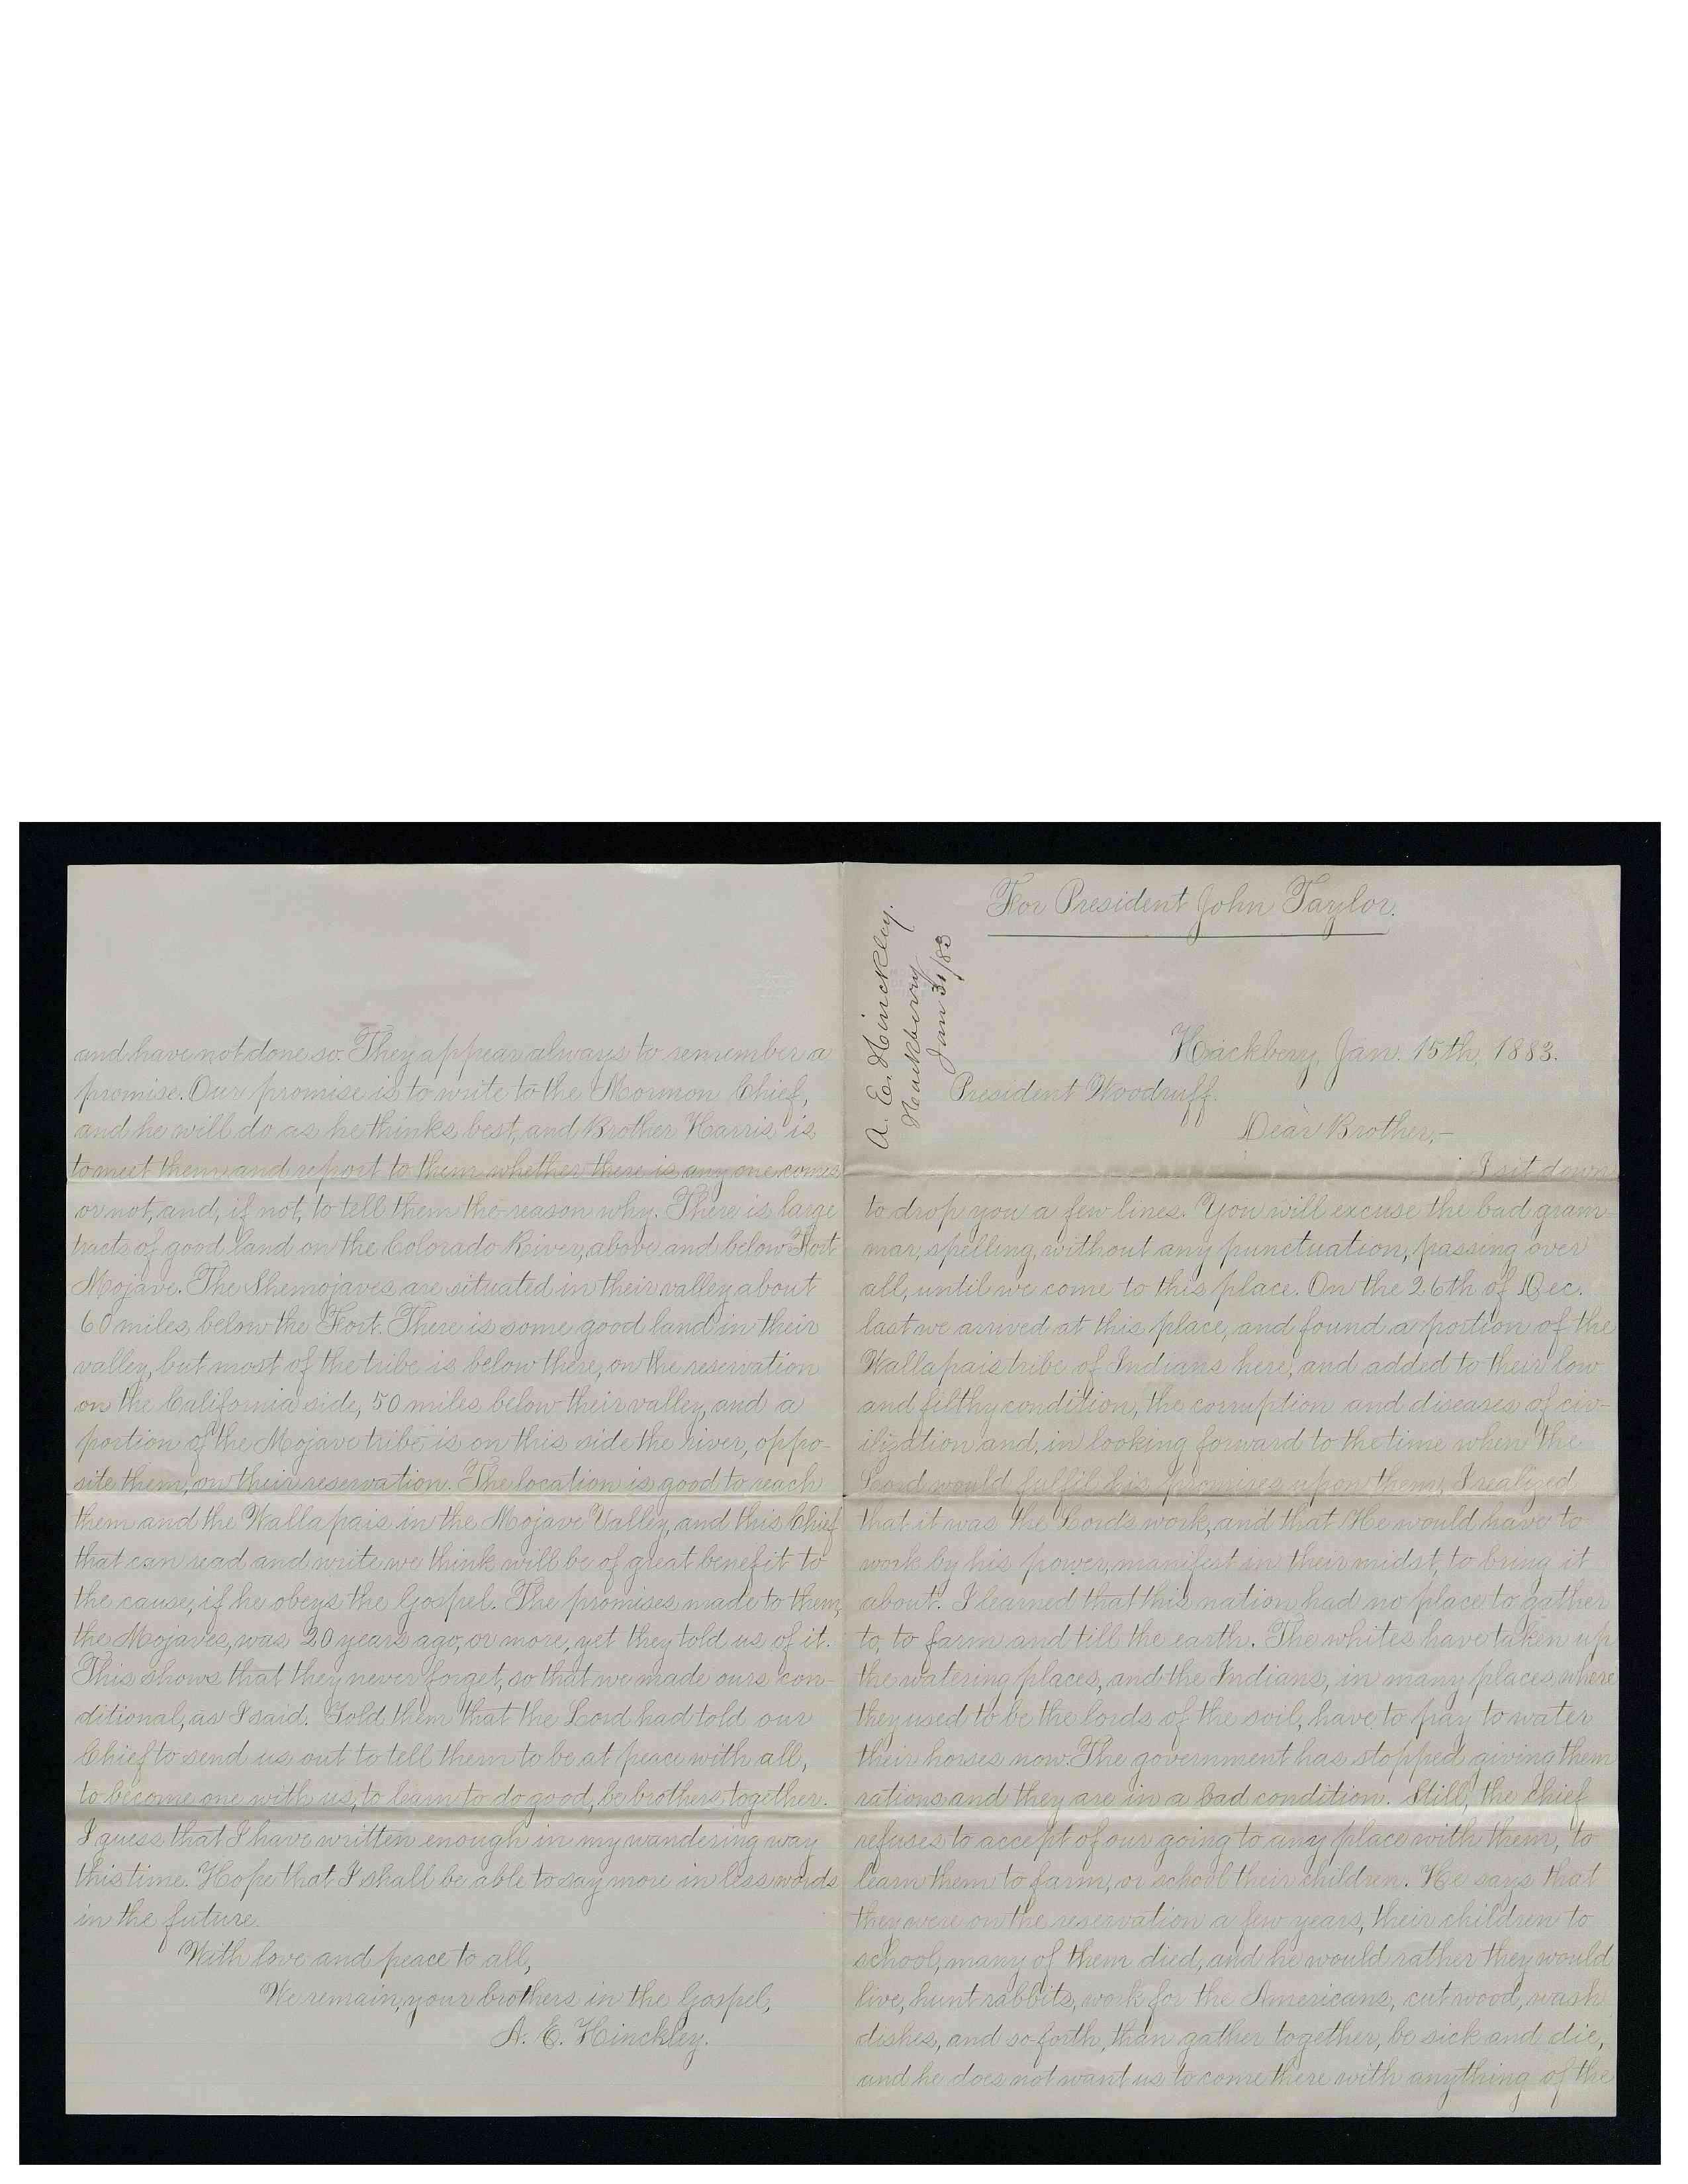 For President John Taylor.
A. E. Hinckley.
Hackberry
Jan 31/83
Hackbery, Jan. 15th, 1883.
President Woodruff.
Dear Brother,-
I sit down
to drop you a few lines. You will excuse the bad gram-
mar, spelling, without any punctuation, passing over
all, until we come to this place. On the 26th of Dec.
last we arrived at this place, and found a portion of the
Wallapais tribe of Indians here, and added to their low
and filthy condition, the corruption and diseases of civ-
ilization and, in looking forward to the time when the
Lord would fulfil his promises upon them, I realized
that it was the Lord's work, and that He would have to
work by his power, manifest in their midst, to bring it
about. I learned that this nation had no place to gather
to, to farm and till the earth. The whites have taken up
the watering places, and the Indians, in many places, where
they used to be the lords of the soil, have to pay to water
their horses now. The government has stopped giving them
rations and they are in a bad condition. Still, the chief
refuses to accept of our going to any place with them, to
learn them to farm, or school their children. He says that
they were on the reservation a few years, their children to
school, many of them died, and he would rather they would
live, hunt rabbits, work for the Americans, cut wood, wash
dishes, and so forth, than gather together, be sick and die,
and he does not want us to come there with anything of the
and have not done so. They appear always to remember a
promise. Our promise is to write to the Mormon Chief,
and he will do as he thinks best, and Brother Harris is
to meet them and report to them whether there is any one comes
or not, and, if not, to tell them the reason why. There is large
tracts of good land on the Colorado River, above and below Fort
Mojave. The Shemojaves are situated in their valley about
60 miles below the Fort. There is some good land in their
valley, but most of the tribe is below there, on the reservation
on the California side, 50 miles below their valley, and a
portion of the Mojave tribe is on this side the river, oppo-
site them, on their reservation. The location is good to reach
them and the Wallapais in the Mojave Valley, and this Chief
that can read and write we think will be of great benefit to
the cause, if he obeys the Gospel. The promises made to them,
the Mojaves, was 20 years ago, or more, yet they told us of it.
This shows that they never forget, so that we made ours con-
ditional, as I said. Told them that the Lord had told our
Chief to send us out to tell them to be at peace with all,
to become one with us, to learn to do good, be brothers together.
I guess that I have written enough in my wandering way
this time. Hope that I shall be able to say more in less words
in the future.
With love and peace to all,
We remain, your brothers in the Gospel,
A. E. Hinckley.